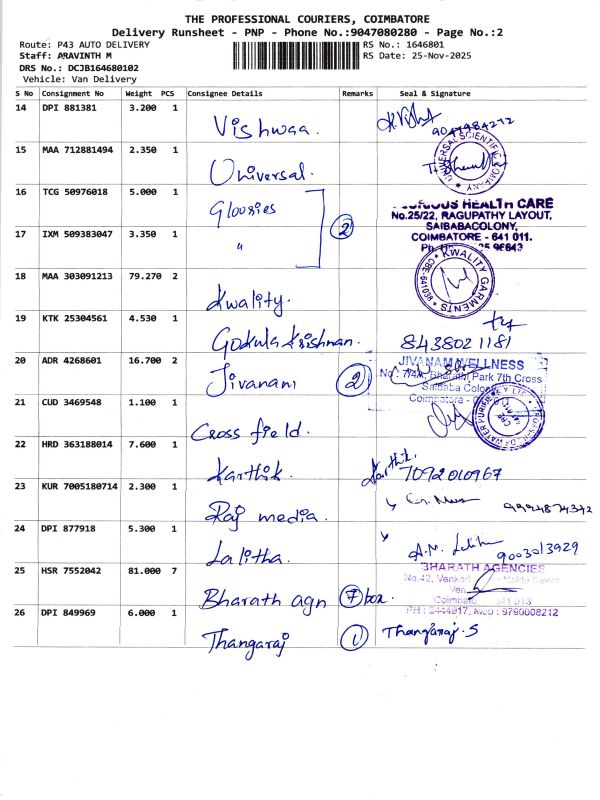 THE PROFESSIONAL COURIERS, COIMBATORE
Delivery Runsheet - PNP - Phone No.:9047080280 - Page No.:2
Route: P43 AUTO DELIVERY
RS No.: 1646801
Staff: ARAVINTH M
RS Date: 25-Nov-2025
DRS No.: DCJB164680102
Vehicle: Van Delivery
S No Consignment No Weight PCS Consignee Details Remarks Seal & Signature
14 DPI 881381 3.200 1 Vishwaa.
15 MAA 712881494 2.350 1 Universal.
UNIVERSAL SCIENTIFIC COMPANY
16 TCG 50976018 5.000 1 Gloosies 2
HEALTH CARE
No.25/22, RAGUPATHY LAYOUT,
SAIBABACOLONY,
COIMBATORE - 641 011.
17 IXM 509383047 3.350 1 "
18 MAA 303091213 79.270 2 Kwality.
KWALITY GARMENTS
19 KTK 25304561 4.530 1 Gokula Krishnan. 8438021181
20 ADR 4268601 16.700 2 Jivanam 2
JIVANAM WELLNESS
Bharathi Park 7th Cross
Saibaba Colony
Coimbatore
21 CUD 3469548 1.100 1 Cross field.
22 HRD 363188014 7.600 1 Karthik. Karthik. 7092010967
23 KUR 7005180714 2.300 1 Raj media. 9994874342
24 DPI 877918 5.300 1 Lalitha. 9003013929
25 HSR 7552042 81.000 7 Bharath agn 7 box.
BHARATH AGENCIES
No.42,
PH : 2444917, Mob : 9790008212
26 DPI 849969 6.000 1 Thangaraj 1 Thangaraj.S